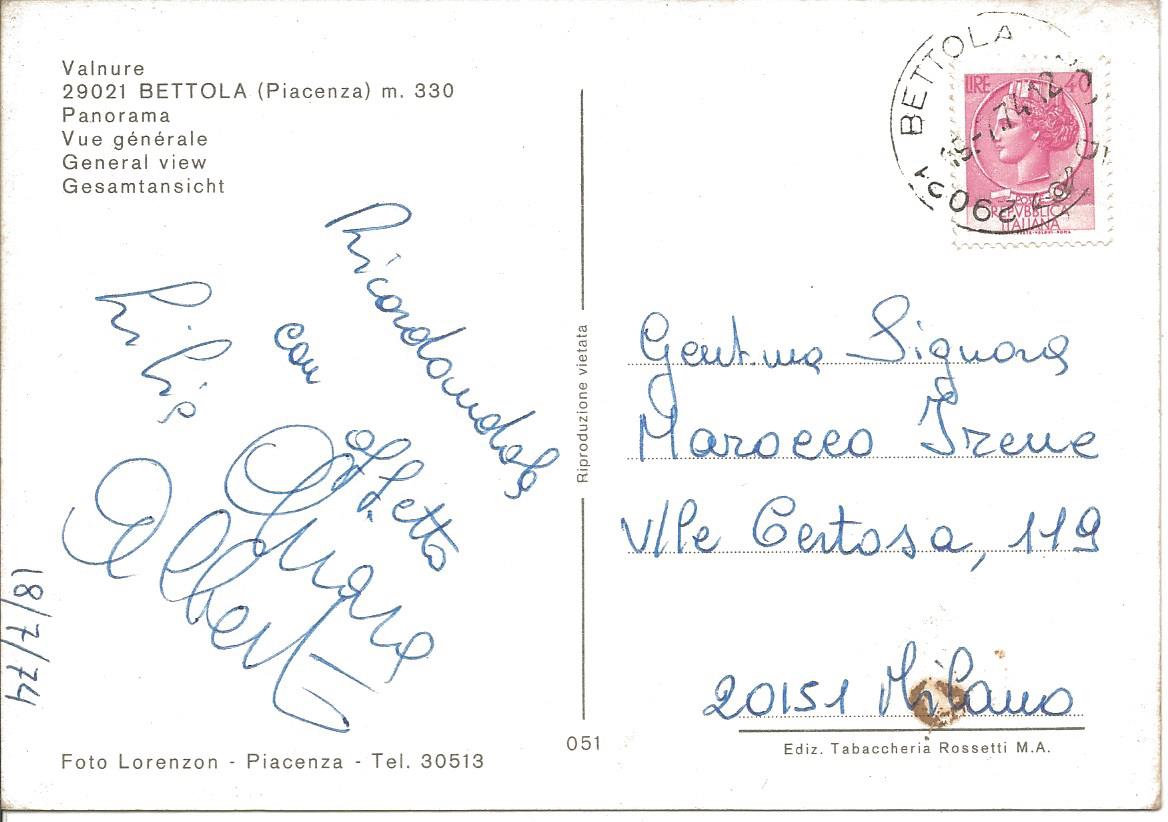 Valnure
29021 BETTOLA (Piacenza) m. 330
Panorama
Vue générale
General view
Gesamtansicht
Ricordandola
con
affetto
Alberto
18/7/74
Foto Lorenzon - Piacenza - Tel. 30513
051
Riproduzione vietata
BETTOLA
LIRE 40
POSTE
REPVBBLICA
ITALIANA
Gent.ma Signora
Marocco Irene
V/le Certosa, 119
20151 Milano
Ediz. Tabaccheria Rossetti M.A.